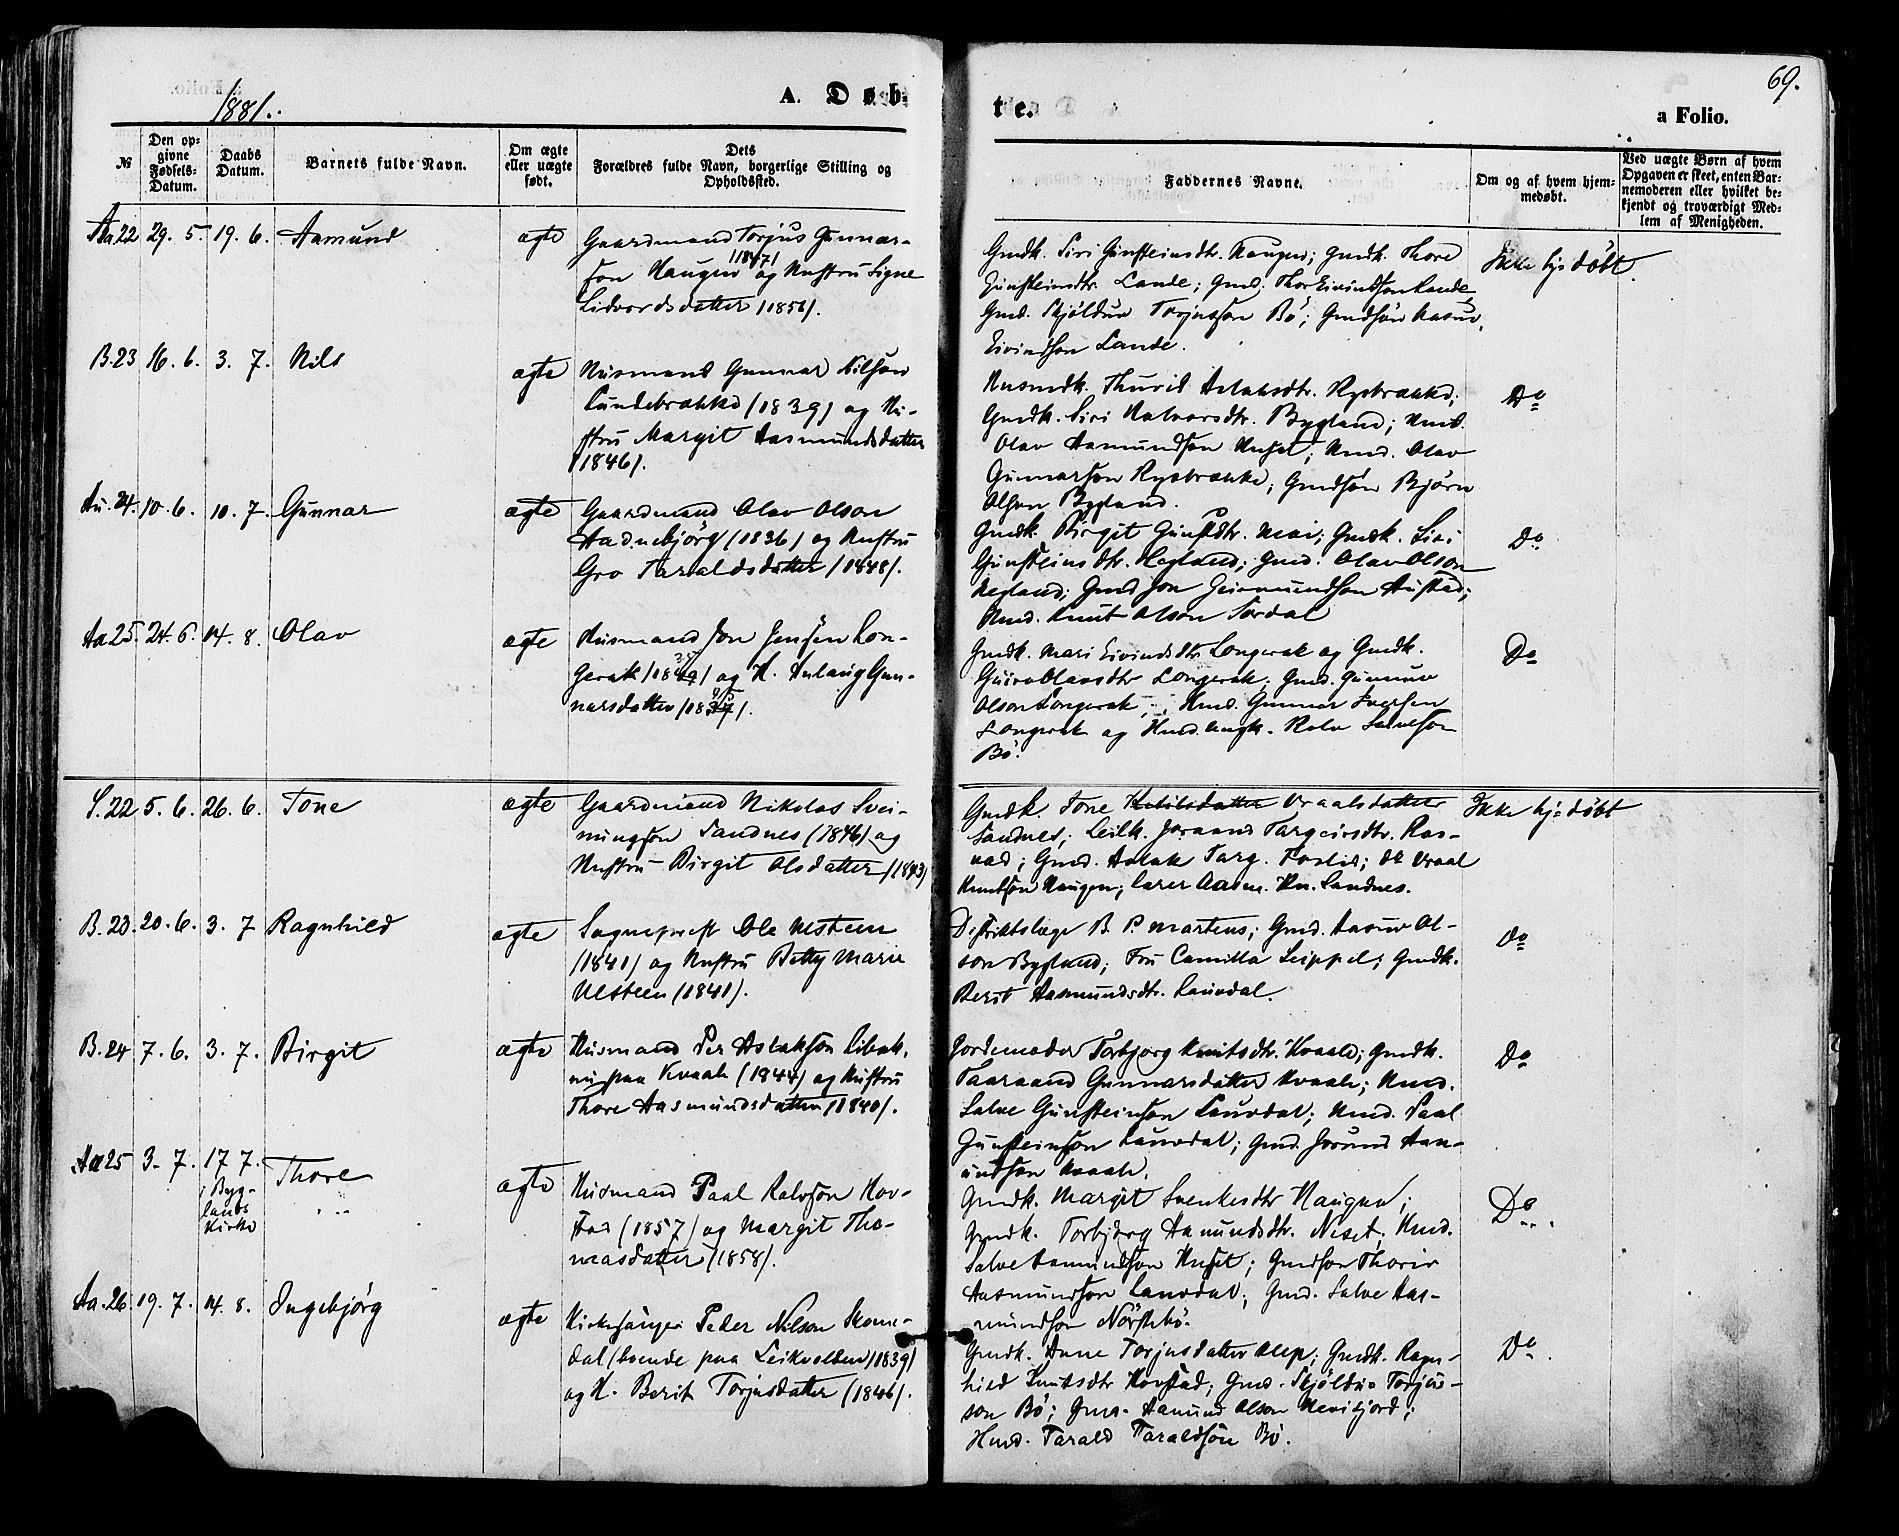 1881.
A. Døb-
te.
69.
a Folio.
№
Den op-
givne
Fødsels-
Datum.
Daabs
Datum.
Barnets fulde Navn.
Om ægte
eller uægte
født.
Dets
Forældres fulde Navn, borgerlige Stilling og
Opholdssted.
Faddernes Navne.
Om og af hvem hjem-
medøbt.
Ved uægte Børn af hvem
Opgaven er skeet, enten Bar-
nemoderen eller hvilket be-
kjendt og troværdigt Med-
lem af Menigheden.
Aa 22 29. 5. 19. 6. Aamund ægte Gaardmand Torjus Gunnar-
son Haugen (1847) og Hustru Signe
Sidvordsdatter (1856).
Gmdk. Siri Gunsteinsdtr. Haugen; Gmdk. Thore
Gunsteinsdtr. Lande; Gmd. Thor Eivindson Lande
Gmd. Skjöldur Torjusson Bö; Gmdsön
Eivindson Lande.
Ikke hjdöbt.
B. 23 16. 6. 3. 7. Nils ægte Husmand Gunnar Nilson
Lundebrække (1839) og Hu-
stru Margit Aasmundsdatter
(1846).
Husmdk. Thurid Aslaksdtr. Rysbrække;
Gmdk. Siri Halvorsdtr. Bygland; Hmd.
Olav Aamundson Huset; Hmd. Olav
Gunnarson Rysbrække; Gmdsön Björn
Olson Bygland.
Do
Au. 24. 10. 6. 10. 7. Gunnar ægte Gaardmand Olav Olson
Aadnebjörg (1836) og Hustru
Gro Taraldsdatter (1848).
Gmdk. Birgit Gunstdtr. Moi; Gmdk. Siri
Gunsteinsdtr. Hegland; Gmd. Olav Olson
Hegland; Gmd Jon Geirmundson Austad;
Hmd. Knut Olson Sordal
Do
Aa 25. 24. 6. 14. 8. Olav ægte Husmand Jon Jensen Lon-
gerak og H. Aslaug Gun-
narsdatter
Gmdk. Mari Eivindsdtr Longerak og Gmdk.
Guro Olavsdtr Longerak; Gmd. Gunnar
Olson Longerak; Hmd. Gunnar Iversen
Longerak og Hmd. Rolv Salveson
Bö.
Do
S. 22 5. 6. 26. 6. Tone ægte Gaardmand Nikolas Svei-
nungson Sandnes (1846) og
Hustru Birgit Olsdatter (1843)
Gmdk. Tone Ketilsdatter Vraalsdatter
Sandnes; Leilk. Joraand Targeirsdtr. Ros-
vad; Gmd. Aslak Targ. Foslid; do Vraal
Knutson Haugen; lærer Aasm. Kn. Sandnes.
Ikke hj=döbt
B. 23. 20. 6. 3. 7 Ragnhild ægte Sognepræst Ole Ulsteen
(1841) og Hustru Betty Marie
Ulsteen (1841).
Distriktslæge B. P. Martens; Gmd. Ol-
son Bygland; Fru Camilla Seippel; Gmdk.
Berit Aasmundsdtr. Lauvdal.
do
B. 24 7. 6. 3. 7. Birgit ægte Husmand Per Aslakson
paa Kvaale (1844) og Hustru
Thore Aasmundsdatter (1840).
Jordemoder Torbjorg Knutsdtr. Kvaale; Gmdk.
Taaraand Gunnarsdatter Kvaale; Hmd.
Salve Gunsteinson Lauvdal; Hmd. Paal
Gunsteinson Lauvdal; Gmd. Jorund Aam-
undson Kvaale.
Do
Aa 25 3. 7. 17 7.
i Byg-
lands
Kirke
Thore ægte Husmand Paal Rolvson Hov-
stad (1857) og Margit Tho-
masdatter (1858).
Gmdk. Margit Svenkesdtr Haugen;
Gmdk. Torbjörg Aamundsdtr. Neset; Hmd.
Salve Aamundson Huset; Gmdson Thorir
Aasmundson Lauvdal; Gmd. Salve Aas-
mundson Nörstebö.
Do
Aa. 26. 19. 7. 14. 8. Ingebjørg ægte Kirkesanger Peder Nilson Skome-
dal (boende paa Leikvolden) (1839)
og H. Berit Torjusdatter (1846).
Gmdk. Anne Torjusdatter Ose; Gmdk. Ragn-
hild Knutsdtr Hovstad; Gmd. Skjöldur Torjus-
son Bö; Gmd. Aamund Olson
Hmd. Tarald Taraldsön Bö.
Do.